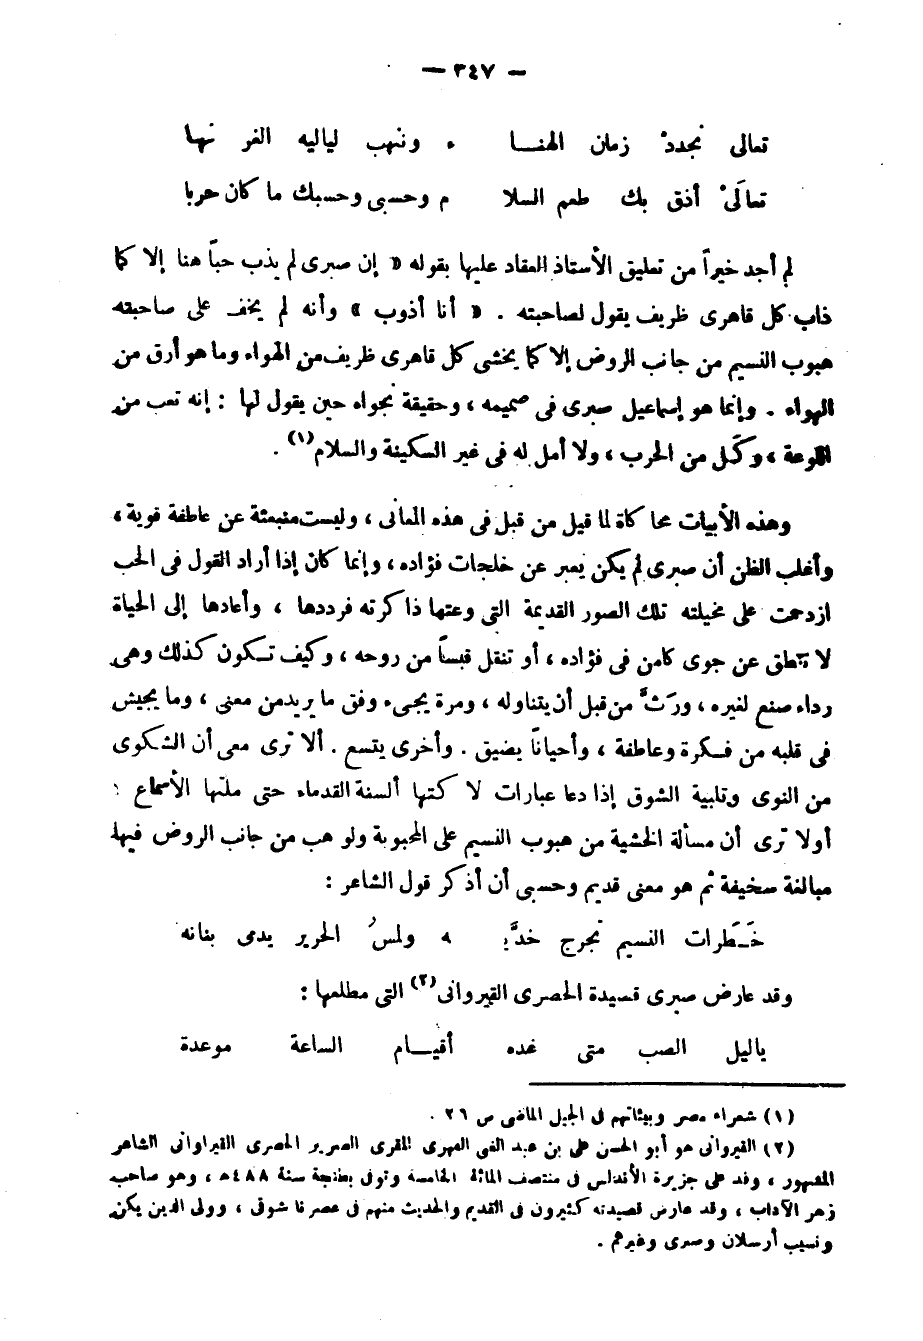 — ٣٤٧ —
تعالى نجددْ زمان الهنـــا ء وننهب لياليه الغر نهبا
تعالَىْ أذق بك طعم السلا م وحسبى وحسبك ما كان حربا
لم أجد خيراً من تعليق الأستاذ العقاد عليها بقوله « إن صبرى لم يذب حباً هنا إلا كما
ذاب كل قاهرى ظريف يقول لصاحبته . « أنا أذوب » وأنه لم يخف على صاحبته
هبوب النسيم من جانب الروض إلا كما يخشى كل قاهرى ظريف من الهواء وما هو أرق من
الهواء . وإنما هو إسماعيل صبرى فى صميمه ، وحقيقة نجواه حين يقول لها : إنه تعب من
اللوعة ، وكَّل من الحرب ، ولا أمل له فى غير السكينة والسلام (١) .
وهذه الأبيات محاكاة لما قيل من قبل فى هذه المعانى ، وليست منبعثة عن عاطفة قوية ،
وأغلب الظن أن صبرى لم يكن يعبر عن خلجات فؤاده ، وإنما كان إذا أراد القول فى الحب
ازدحمت على مخيلته تلك الصور القديمة التى وعتها ذاكرته فرددها ، وأعادها إلى الحياة
لا تنطق عن جوى كامن فى فؤاده ، أو تنقل قبساً من روحه ، وكيف تكون كذلك وهى
رداء صنع لغيره ، ورَثَّ من قبل أن يتناوله ، ومرة يجىء وفق ما يريد من معنى ، وما يجيش
فى قلبه من فكرة وعاطفة ، وأحياناً يضيق . وأخرى يتسع . ألا ترى معى أن الشكوى
من النوى وتلبية الشوق إذا دعا عبارات لاكتها ألسنة القدماء حتى ملتها الأسماع ؛
أولا ترى أن مسألة الخشية من هبوب النسيم على المحبوبة ولو هب من جانب الروض فيها
مبالغة سخيفة ثم هو معنى قديم وحسبى أن أذكر قول الشاعر :
خَـطَرات النسيم تجرح خدَّيـ ـه ولمسُ الحرير يدمى بنانه
وقد عارض صبرى قصيدة الحصرى القيروانى (٢) التى مطلعها :
ياليل الصب متى غده أقيـــام الساعة موعدة
(١) شعراء مصر وبيئاتهم فى الجيل الماضى ص ٢٦ .
(٢) القيروانى هو أبو الحسن على بن عبد الغنى الفهرى المقرى الضرير الحصرى القيراوانى الشاعر
المشهور ، وفد على جزيرة الأندلس فى منتصف المائة الخامسة وتوفى بطنجة سنة ٤٨٨هـ ، وهو صاحب
زهر الآداب ، وقد عارض قصيدته كثيرون فى القديم والحديث منهم فى عصرنا شوقى ، وولى الدين يكن
ونسيب أرسلان وصبرى وغيرهم .